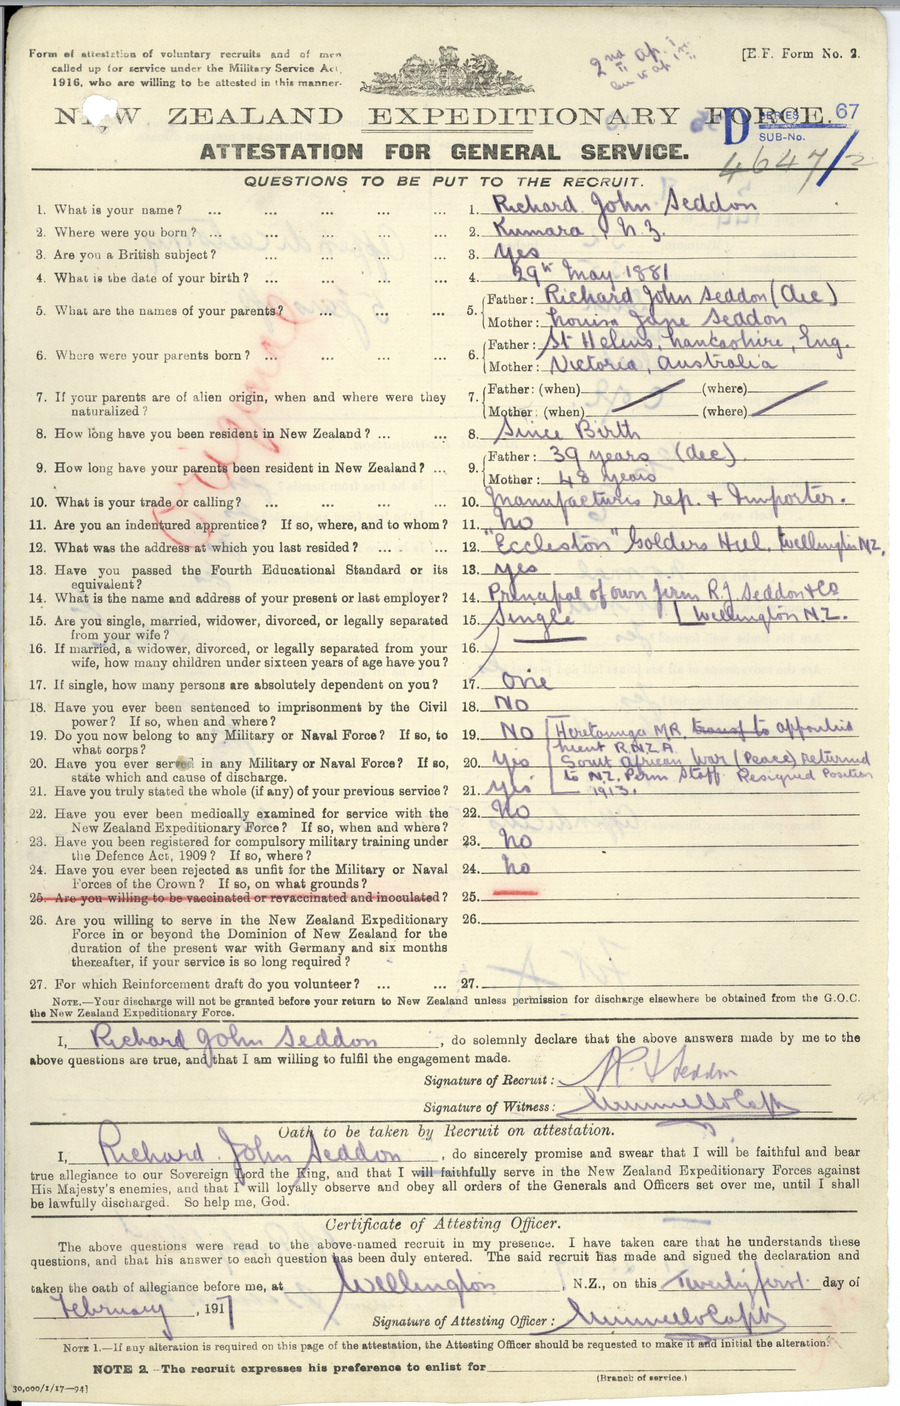 Form of attestation of voluntary recruits and of men
called up for service under the Military Service Act,
1916, who are willing to be attested in this manner.
2nd
[E.F. Form No. 2.
NEW ZEALAND EXPEDITIONARY FORCE.
D SERIES 67
SUB-No.
4647/2
ATTESTATION FOR GENERAL SERVICE.
QUESTIONS TO BE PUT TO THE RECRUIT.
Original
1. What is your name? ... ... ... ... 1. Richard John Seddon
2. Where were you born? ... ... ... ... 2. Kumara, N.Z.
3. Are you a British subject? ... ... ... 3. Yes
4. What is the date of your birth? ... ... ... 4. 29th May 1881
5. What are the names of your parents? ... ... ... 5. Father: Richard John Seddon (dec)
Mother: Louisa Jane Seddon
6. Where were your parents born? ... ... ... ... 6. Father: St Helens, Lancashire, Eng.
Mother: Victoria, Australia
7. If your parents are of alien origin, when and where were they
naturalized? 7. Father: (when) (where)
Mother: (when) (where)
8. How long have you been resident in New Zealand? ... ... 8. Since Birth
9. How long have your parents been resident in New Zealand? ... 9. Father: 39 years (dec)
Mother: 48 years
10. What is your trade or calling? ... ... ... ... 10. Manufacturers rep. & Importer.
11. Are you an indentured apprentice? If so, where, and to whom? 11. No
12. What was the address at which you last resided? ... ... 12. "Eccleston" Golders Hill, Wellington N.Z.
13. Have you passed the Fourth Educational Standard or its
equivalent? 13. Yes
14. What is the name and address of your present or last employer? 14. Principal of own firm R.J. Seddon & Co
Wellington N.Z.
15. Are you single, married, widower, divorced, or legally separated
from your wife? 15. Single
16. If married, a widower, divorced, or legally separated from your
wife, how many children under sixteen years of age have you? 16.
17. If single, how many persons are absolutely dependent on you? 17. One
18. Have you ever been sentenced to imprisonment by the Civil
power? If so, when and where? 18. No
19. Do you now belong to any Military or Naval Force? If so, to
what corps? 19. No
20. Have you ever served in any Military or Naval Force? If so,
state which and cause of discharge. 20. Yes
21. Have you truly stated the whole (if any) of your previous service? 21. Yes
Heretaunga M.R. transf to appoint
ment R.N.Z.A.
South African War (Peace) Returned
to N.Z. Perm Staff Resigned Position
1913.
22. Have you ever been medically examined for service with the
New Zealand Expeditionary Force? If so, when and where? 22. No
23. Have you been registered for compulsory military training under
the Defence Act, 1909? If so, where? 23. No
24. Have you ever been rejected as unfit for the Military or Naval
Forces of the Crown? If so, on what grounds? 24. No
25. Are you willing to be vaccinated or revaccinated and inoculated? 25.
26. Are you willing to serve in the New Zealand Expeditionary
Force in or beyond the Dominion of New Zealand for the
duration of the present war with Germany and six months
thereafter, if your service is so long required? 26.
27. For which Reinforcement draft do you volunteer? ... ... 27.
NOTE.—Your discharge will not be granted before your return to New Zealand unless permission for discharge elsewhere be obtained from the G.O.C.
the New Zealand Expeditionary Force.
I, Richard John Seddon, do solemnly declare that the above answers made by me to the
above questions are true, and that I am willing to fulfil the engagement made.
Signature of Recruit: R J Seddon
Signature of Witness:
Oath to be taken by Recruit on attestation.
I, Richard John Seddon, do sincerely promise and swear that I will be faithful and bear
true allegiance to our Sovereign Lord the King, and that I will faithfully serve in the New Zealand Expeditionary Forces against
His Majesty's enemies, and that I will loyally observe and obey all orders of the Generals and Officers set over me, until I shall
be lawfully discharged. So help me, God.
Certificate of Attesting Officer.
The above questions were read to the above-named recruit in my presence. I have taken care that he understands these
questions, and that his answer to each question has been duly entered. The said recruit has made and signed the declaration and
taken the oath of allegiance before me, at Wellington, N.Z., on this Twenty first day of
February, 1917
Signature of Attesting Officer:
NOTE 1.—If any alteration is required on this page of the attestation, the Attesting Officer should be requested to make it and initial the alteration.
NOTE 2.—The recruit expresses his preference to enlist for
(Branch of service.)
30,000/1/17—94]